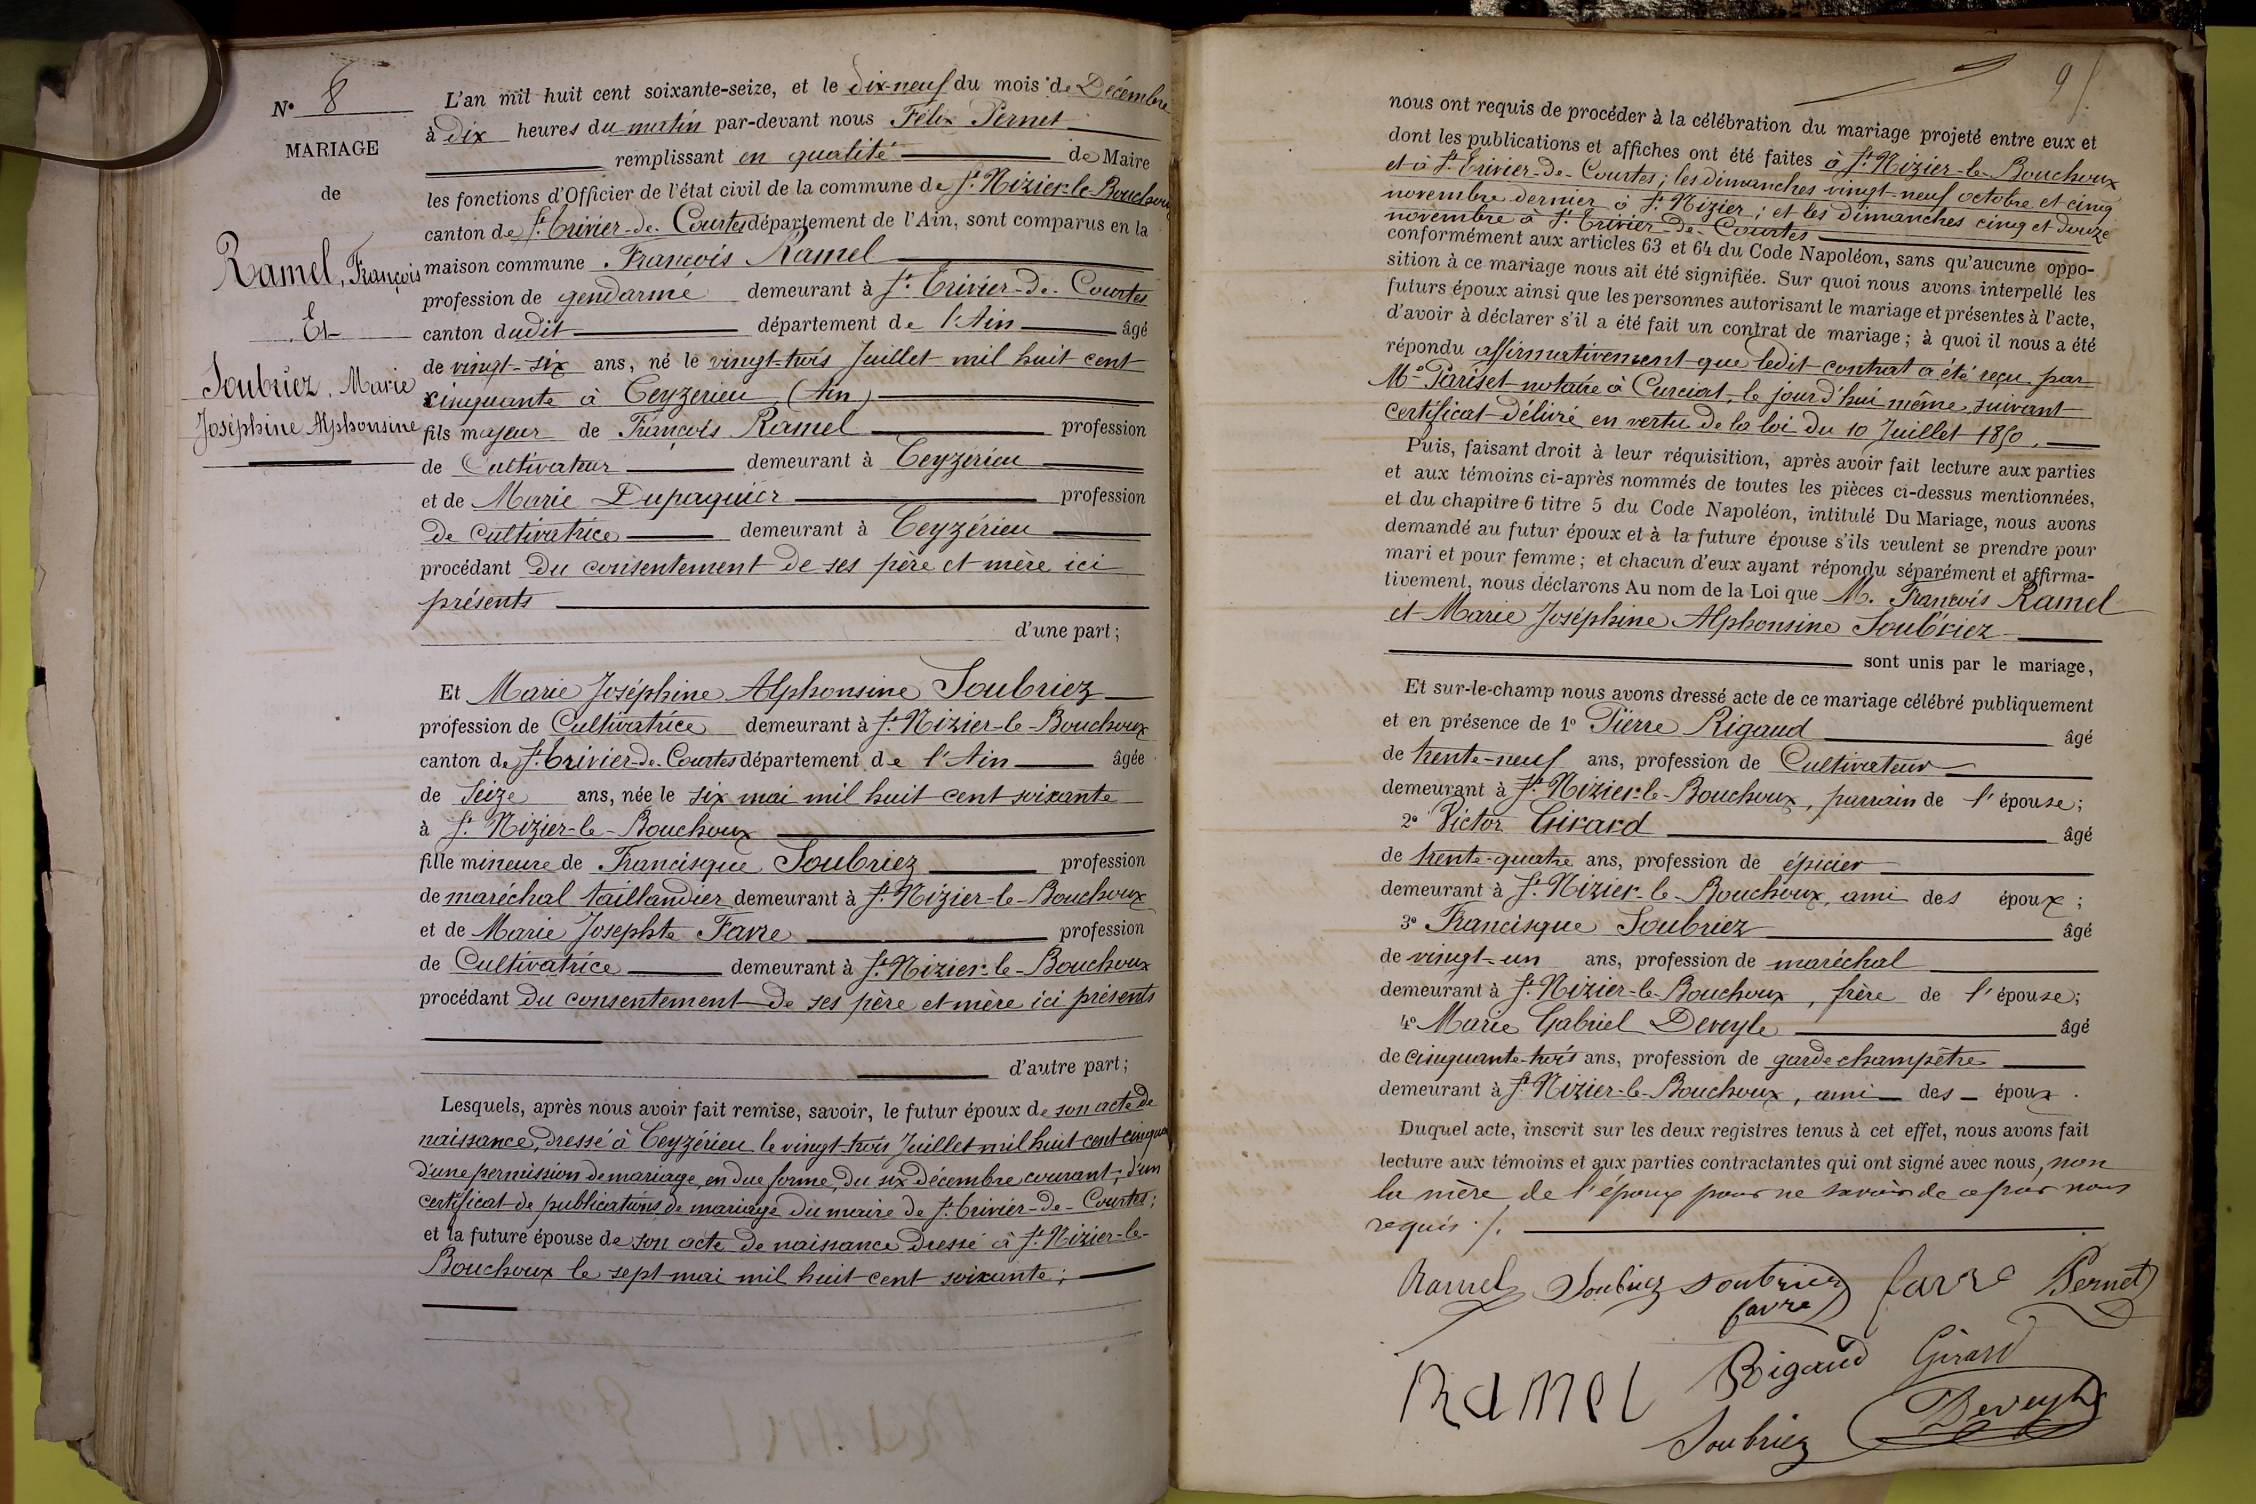 N° 8
MARIAGE
de
Ramel, François
Et
Soubriez, Marie
Joséphine Alphonsine
L'an mil huit cent soixante-seize, et le dix-neuf du mois de Décembre
à dix heures du matin par-devant nous Félix Pernet
remplissant en qualité de Maire
les fonctions d'Officier de l'état civil de la commune de St. Nizier-le-Bouchoux
canton de St. Trivier-de-Courtes département de l'Ain, sont comparus en la
maison commune François Ramel
profession de gendarme demeurant à St. Trivier-de-Courtes
canton dudit département de l'Ain âgé
de vingt-six ans, né le vingt-trois Juillet mil huit cent
cinquante à Ceyzerieu (Ain)
fils majeur de François Ramel profession
de Cultivateur demeurant à Ceyzerieu
et de Marie Dupaquier profession
de cultivatrice demeurant à Ceyzérieu
procédant du consentement de ses père et mère ici
présents
d'une part;
Et Marie Joséphine Alphonsine Soubriez
profession de Cultivatrice demeurant à St. Nizier-le-Bouchoux
canton de St. Trivier-de-Courtes département de l'Ain âgée
de Seize ans, née le six mai mil huit cent soixante
à St. Nizier-le-Bouchoux
fille mineure de Francisque Soubriez profession
de maréchal taillandier demeurant à St. Nizier-le-Bouchoux
et de Marie Josephte Favre profession
de Cultivatrice demeurant à St. Nizier-le-Bouchoux
procédant du consentement de ses père et mère ici présents
d'autre part;
Lesquels, après nous avoir fait remise, savoir, le futur époux de son acte de
naissance, dressé à Ceyzérieu le vingt-trois Juillet mil huit cent cinquante
d'une permission de mariage, en due forme, du six décembre courant; d'un
certificat de publications de mariage du maire de St. Trivier-de-Courtes;
et la future épouse de son acte de naissance dressé à St. Nizier-le-
Bouchoux le sept mai mil huit cent soixante;
9
nous ont requis de procéder à la célébration du mariage projeté entre eux et
dont les publications et affiches ont été faites à St. Nizier-le-Bouchoux
et à St. Trivier-de-Courtes; les dimanches vingt-neuf octobre et cinq
novembre dernier à St. Nizier; et les dimanches cinq et douze
novembre à St. Trivier-de-Courtes
conformément aux articles 63 et 64 du Code Napoléon, sans qu'aucune oppo-
sition à ce mariage nous ait été signifiée. Sur quoi nous avons interpellé les
futurs époux ainsi que les personnes autorisant le mariage et présentes à l'acte,
d'avoir à déclarer s'il a été fait un contrat de mariage; à quoi il nous a été
répondu affirmativement que ledit contrat a été reçu par
Me Pariset notaire à Curciat, le jourd'hui même, suivant
certificat délivré en vertu de la loi du 10 Juillet 1850.
Puis, faisant droit à leur réquisition, après avoir fait lecture aux parties
et aux témoins ci-après nommés de toutes les pièces ci-dessus mentionnées,
et du chapitre 6 titre 5 du Code Napoléon, intitulé Du Mariage, nous avons
demandé au futur époux et à la future épouse s'ils veulent se prendre pour
mari et pour femme; et chacun d'eux ayant répondu séparément et affirma-
tivement, nous déclarons Au nom de la Loi que M. François Ramel
et Marie Joséphine Alphonsine Soubriez
sont unis par le mariage,
Et sur-le-champ nous avons dressé acte de ce mariage célébré publiquement
et en présence de 1° Pierre Rigaud âgé
de trente-neuf ans, profession de Cultivateur
demeurant à St. Nizier-le-Bouchoux, parrain de l'épouse;
2° Victor Girard âgé
de trente-quatre ans, profession de épicier
demeurant à St. Nizier-le-Bouchoux, ami des époux;
3° Francisque Soubriez âgé
de vingt-un ans, profession de maréchal
demeurant à St. Nizier-le-Bouchoux, frère de l'épouse;
4° Marie Gabriel Deveyle âgé
de cinquante-trois ans, profession de garde champêtre
demeurant à St. Nizier-le-Bouchoux, ami des époux.
Duquel acte, inscrit sur les deux registres tenus à cet effet, nous avons fait
lecture aux témoins et aux parties contractantes qui ont signé avec nous, non
la mère de l'époux pour ne savoir de ce par nous
requis ./.
Ramel Soubriez Soubriez favre Pernet
favre
Ramel Rigaud Girard
Soubriez Deveyle